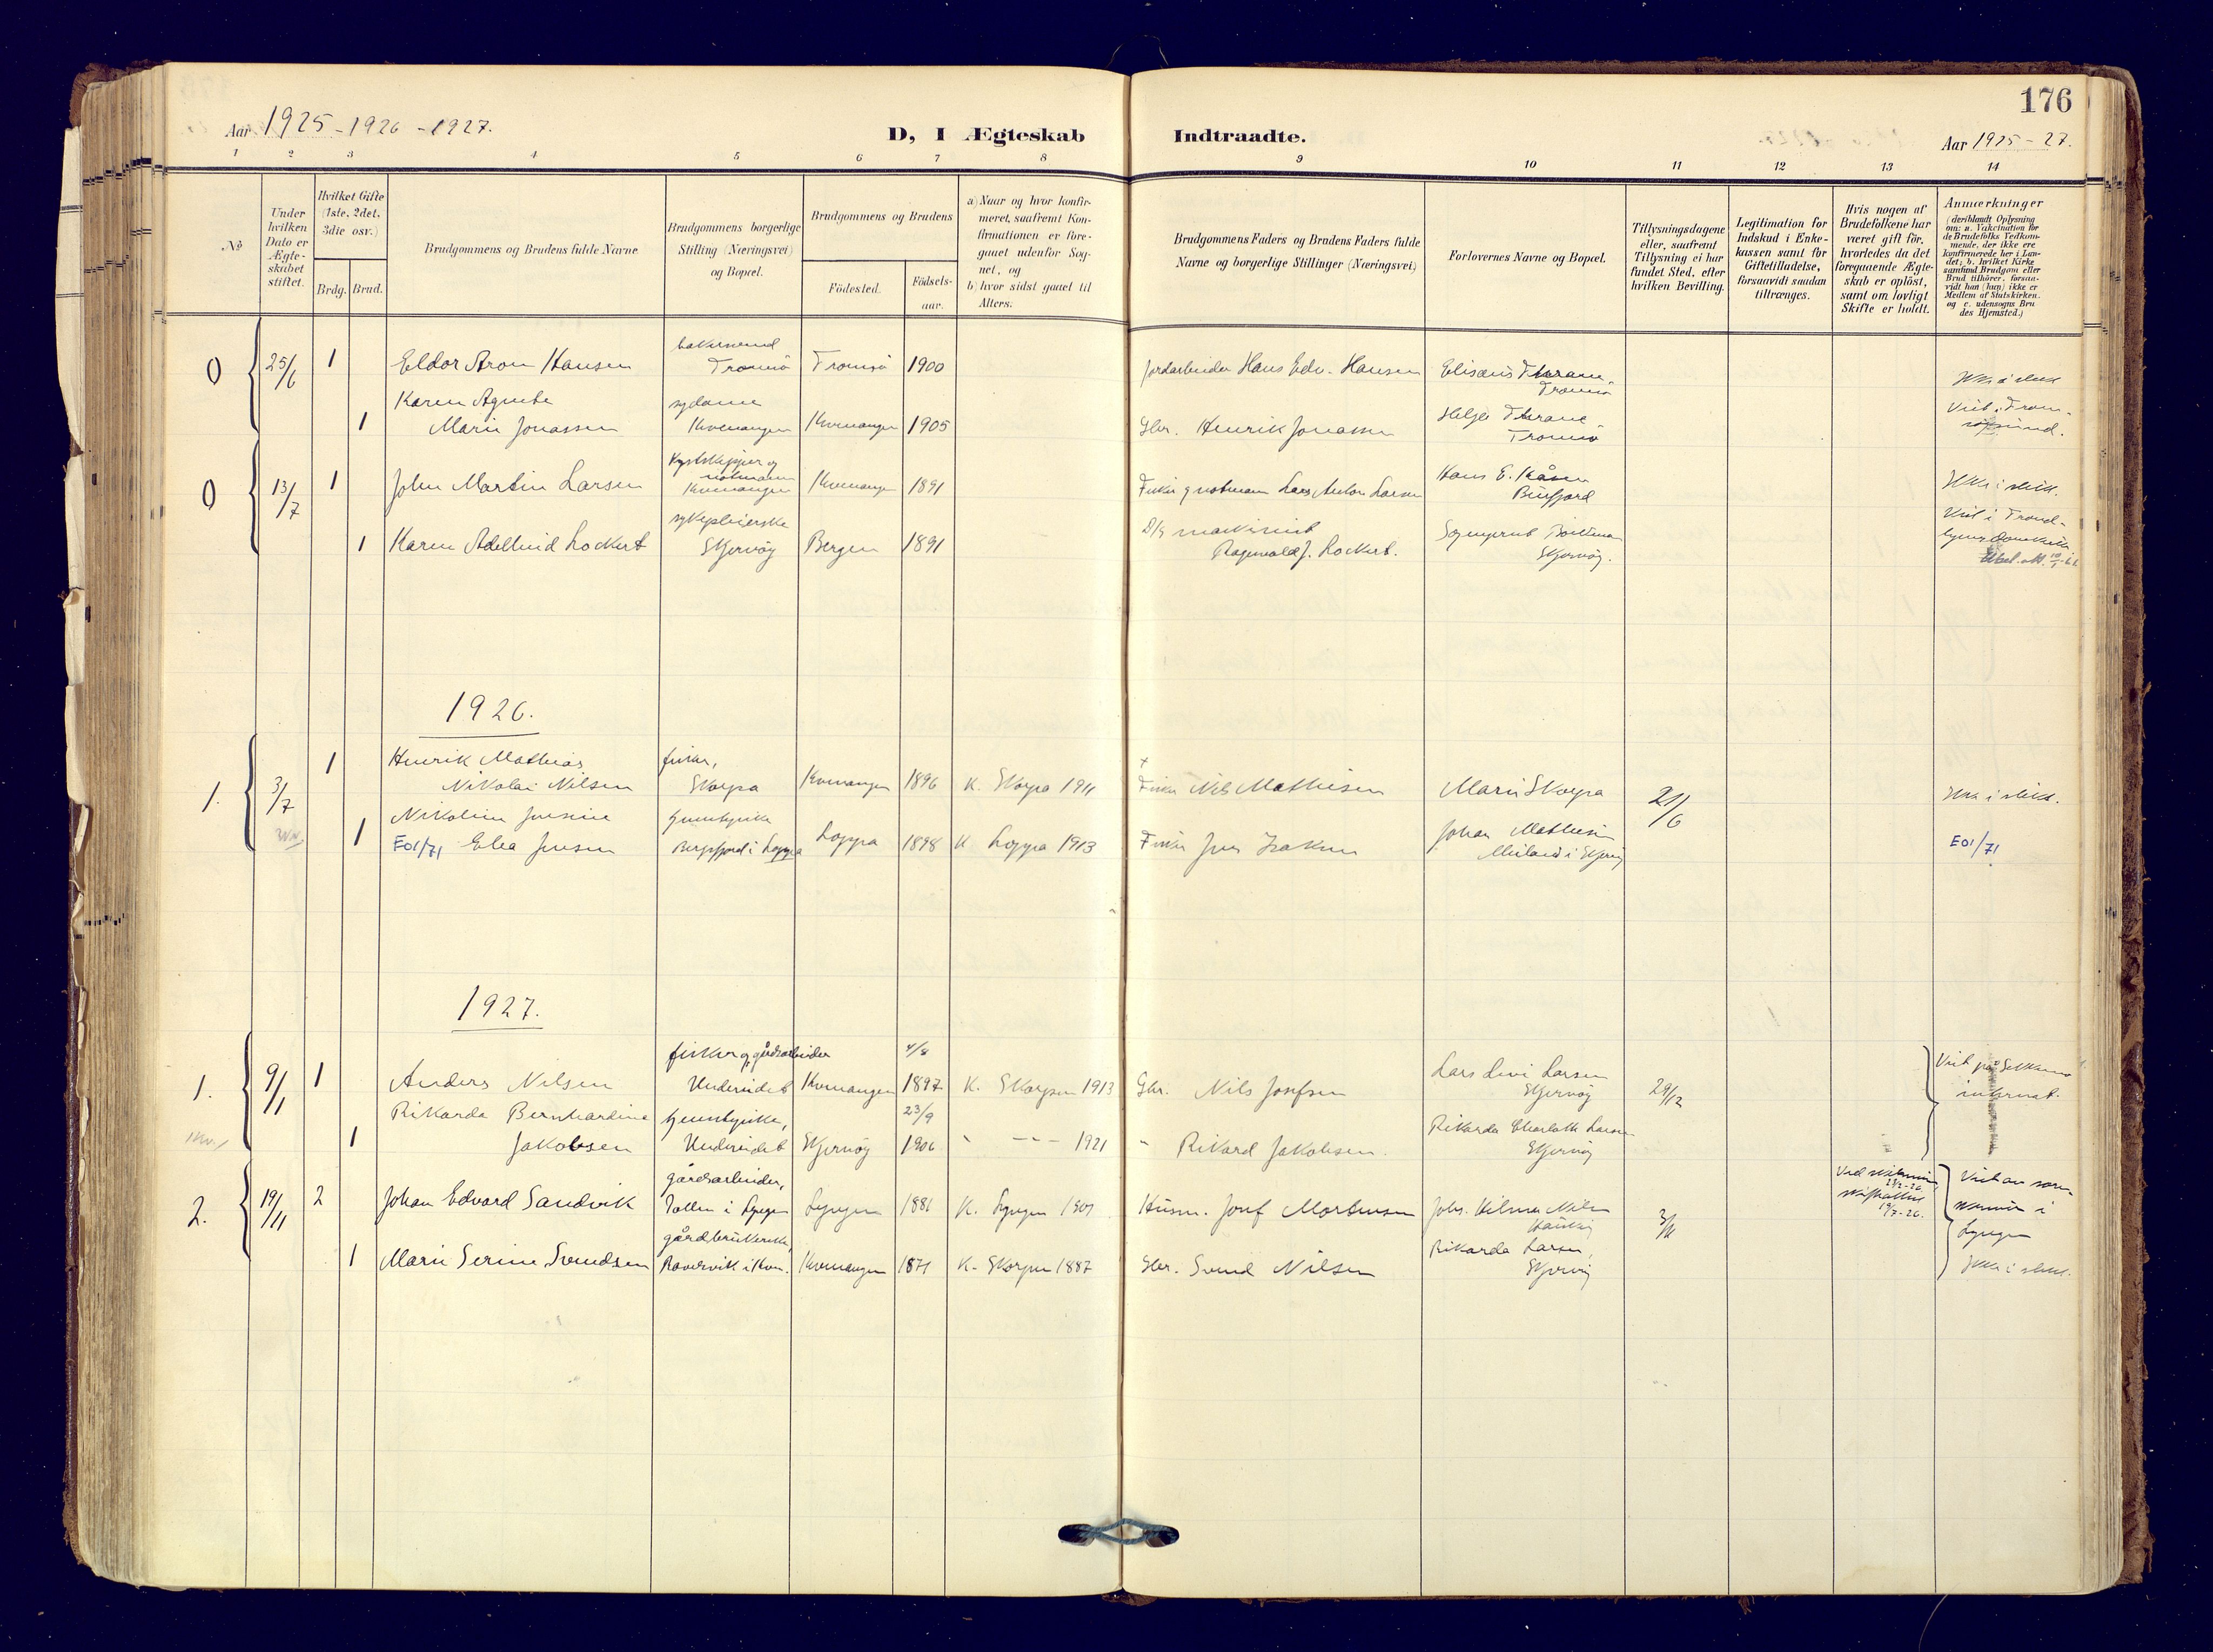 176
Aar 1925 - 1926 - 1927.
D, I Ægteskab Indtraadte.
Aar 1925 - 27.
1 2 3 4 5 6 7 8 9 10 11 12 13 14
No
Under hvilken Dato er Ægteskabet stiftet.
Hvilket Gifte (1ste, 2det, 3die osv.)
Brdg. Brud.
Brudgommens og Brudens fulde Navne
Brudgommens borgerlige Stilling (Næringsvei) og Bopæl.
Brudgommens og Brudens
Födested.
Födselsaar.
a) Naar og hvor konfirmeret, saafremt Konfirmationen er foregaaet udenfor Sognet, og
b) hvor sidst gaaet til Alters.
Brudgommens Faders og Brudens Faders fulde Navne og borgerlige Stillinger (Næringsvei)
Forlovernes Navne og Bopæl.
Tillysningsdagene eller, saafremt Tillysning ei har fundet Sted, efter hvilken Bevilling.
Legitimation for Indskud i Enkekassen samt for Giftetilladelse, forsaavidt saadan tiltrænges.
Hvis nogen af Brudefolkene har været gift för, hvorledes da det foregaaende Ægteskab er oplöst, samt om lovligt Skifte er holdt.
Anmærkninger
(deriblandt Oplysning om: a. Vakcination for de Brudefolks Vedkommende, der ikke ere konfirmerede her i Landet; b. hvilket Kirkesamfund Brudgom eller Brud tilhörer, forsaavidt han (hun) ikke er Medlem af Statskirken, og c. udensogns Brudes Hjemsted.)
0 25/6 1 Eldor Aron Hansen
Tromsö Tromsö 1900
Jordarbeider Hans Edv. Hansen
Tromsö
Ikke i slekt
Karen Agnete
sydame
1 Marie Jonassen Kvænangen Kvænangen 1905
Gbr. Henrik Jonassen
Tromsö
0 13/7 1 John Martin Larsen
Kystskipper og
notmann
Kvænangen Kvænangen 1891
Fisker g notmann Lars Anton Larsen
Hans E.
Burfjord
Ikke i slekt.
sykepleierske
1 Karen Adelheid Lockert Skjervöy Bergen 1891
D/s maskinist
Ragnvald J. Lockert.
Sogneprest
Skjervöy.
Viet i Trond-
1926.
1. 3/7 1 Henrik Mathias
Nikolai Nilsen
fisker,
Skorpa Kvænangen 1896 K. Skorpa 1911
+
Fisker Nils Mathisen
Marie Skorpa
21/6
Ikke i slekt.
Nikoline Jensine
1 E01/71 Elea Jensen
Bergsfjord i Loppa Loppa 1898 K Loppa 1913
Fisker Jens Isaksen
Johan Mathisen
E01/71
1927.
1. 9/1 1 Anders Nilsen
fisker og gårdsarbeider
Undereidet Kvænangen 4/8 1897 K. Skorpen 1913
Gbr. Nils Josefsen
Lars Levi Larsen
Skjervöy
29/12
internat.
Rikarda Bernhardine
1 Jakobsen
Undereidet Skjervöy 23/9 1906 " - - - 1921
" Rikard Jakobsen.
Rikarda Charlotte Larsen
Skjervöy
2. 19/11 2 Johan Edvard Sandvik
gårdsarbeider,
i Lyngen Lyngen 1881 K. Lyngen 1901
Husm. Josef Mortensen
Johs. Hilmar Nilsen
3/11
19/7-26.
Lyngen
1 Marie Serine Svendsen
gårdbrukerske,
i Kvæn. Kvænangen 1871 K. Skorpen 1887
Gbr. Svend Nilsen
Rikarda Larsen,
Skjervöy
Ikke i slekt.